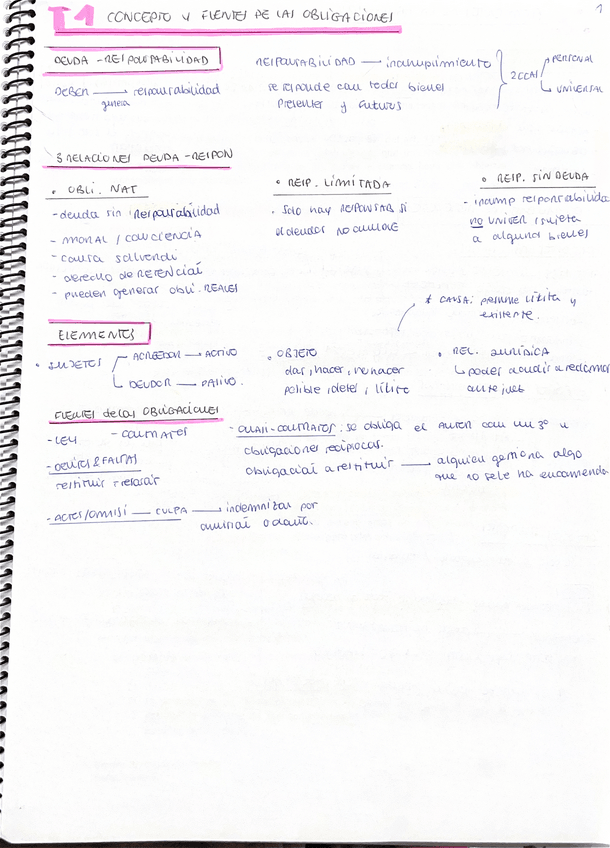 T1 CONCEPTO Y FUENTES DE LAS OBLIGACIONES
1
DEUDA - RESPONSABILIDAD
DEBER → responsabilidad
genera
RESPONSABILIDAD → incumplimiento
se responde con todos bienes
presentes y futuros
2 CCAS
PERSONAL
UNIVERSAL
3 RELACIONES DEUDA - RESPON
• OBLI. NAT
- deuda sin responsabilidad
- MORAL / CONCIENCIA
- causa solvendi
- derecho de RETENCIÓN
- pueden generar obli. REALES
• RESP. LIMITADA
• Solo hay RESPONSAB si
el deudor no cumple
• RESP. SIN DEUDA
- incump responsabilida
no UNIVER, sujeta
a algunos bienes
* CAUSA: presume lícita y
existente.
ELEMENTOS
• SUJETOS
ACREEDOR → ACTIVO
DEUDOR → PASIVO.
• OBJETO
dar, hacer, no hacer
posible, deter, lícito
• REL. JURÍDICA
↳ poder acudir a reclamar
ante juez
FUENTES de las OBLIGACIONES
- LEY
- CONTRATOS
- DELITOS & FALTAS
restituir y resarcir
- ACTOS/OMISI — CULPA → indemnizar por
omisión o acto.
- CUASI-CONTRATOS: se obliga el AUTOR con un 3º u
obligaciones recíprocas.
obligación a restituir → alguien gestiona algo
que no se le ha encomenda